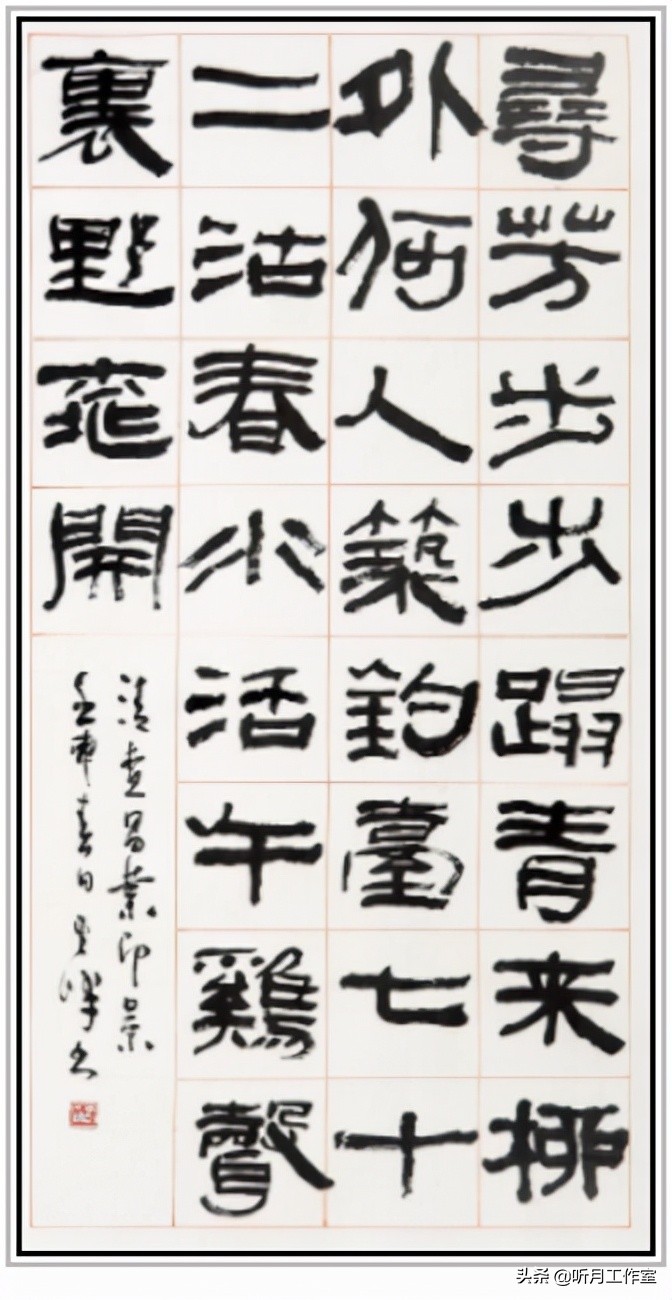 尋芳步步蹋青来柳
外何人築釣臺七十
二沽春水活午鷄聲
裏野桃開
清查昌業即景
壬申春日峰书
头条 @听月工作室